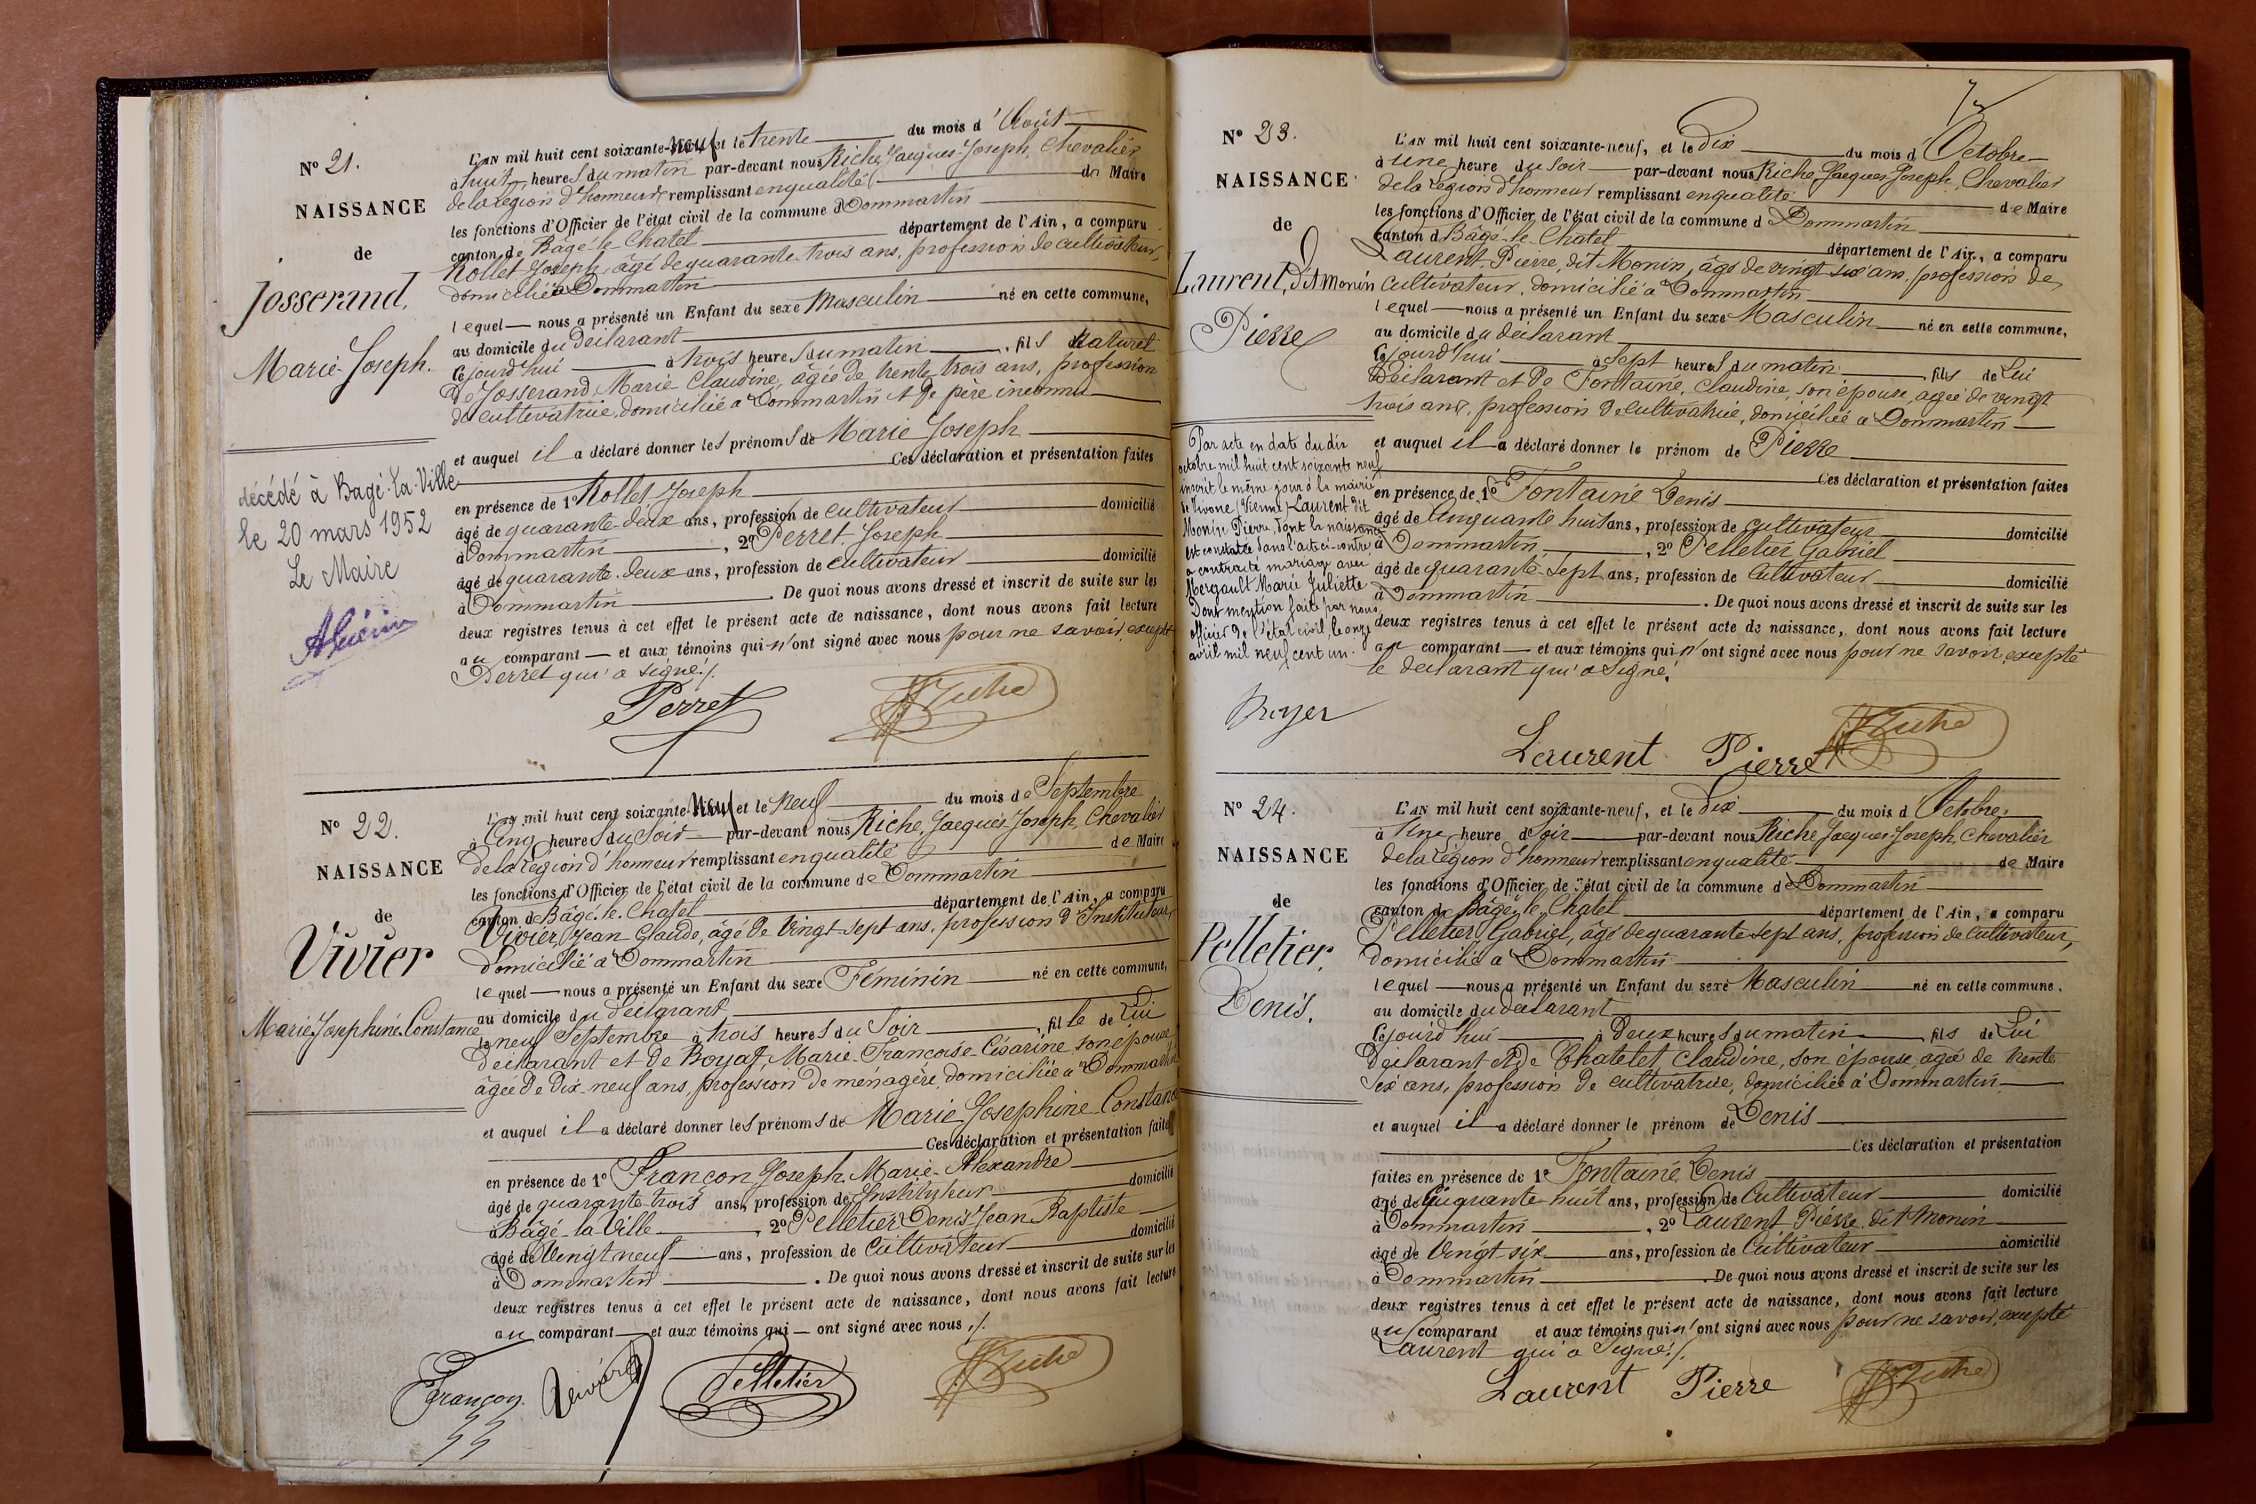 N° 21.
NAISSANCE
de
Josserand.
Marie-Joseph.
décédé à Bagé-la-Ville
le 20 mars 1952
Le Maire
L'AN mil huit cent soixante-neuf et le trente du mois d'Août
à huit heures du matin par-devant nous Riche, Jacques-Joseph, Chevalier
de la Légion d'honneur remplissant en qualité de Maire
les fonctions d'Officier de l'état civil de la commune d Dommartin
canton de Bâgé-le-Chatel département de l'Ain, a comparu
Rollet Joseph, âgé de quarante trois ans, profession de cultivateur,
domicilié à Dommartin
lequel nous a présenté un Enfant du sexe Masculin né en cette commune,
au domicile du déclarant
cejourd'hui à trois heures du matin, fils naturel
de Josserand, Marie Claudine, âgée de trente trois ans, profession
de cultivatrice, domiciliée à Dommartin et de père inconnu
et auquel il a déclaré donner les prénoms de Marie Joseph
Ces déclaration et présentation faites
en présence de 1° Rollet Joseph
âgé de quarante-deux ans, profession de cultivateur domicilié
à Dommartin, 2° Perret Joseph
âgé de quarante-deux ans, profession de cultivateur domicilié
à Dommartin. De quoi nous avons dressé et inscrit de suite sur les
deux registres tenus à cet effet le présent acte de naissance, dont nous avons fait lecture
au comparant et aux témoins qui n'ont signé avec nous pour ne savoir, excepté
Perret qui a signé ./.
Perret
N° 22.
NAISSANCE
de
Vivier
Marie Joséphine Constance
L'AN mil huit cent soixante-neuf et le neuf du mois de Septembre
à cinq heures du soir par-devant nous Riche, Jacques-Joseph, Chevalier
de la Légion d'honneur remplissant en qualité de Maire
les fonctions d'Officier de l'état civil de la commune de Dommartin
canton de Bâgé-le-Chatel département de l'Ain, a comparu
Vivier, Jean Claude, âgé de vingt-sept ans, profession d'Instituteur,
domicilié à Dommartin
lequel nous a présenté un Enfant du sexe Féminin né en cette commune,
au domicile du déclarant
le neuf Septembre à trois heures du Soir, fille de Lui
déclarant et de Boyat, Marie-Françoise-Césarine, son épouse
âgée de dix-neuf ans, profession de ménagère, domiciliée à Dommartin
et auquel il a déclaré donner les prénoms de Marie Joséphine Constance
Ces déclaration et présentation faites
en présence de 1° Françon Joseph Marie-Alexandre
âgé de quarante-trois ans, profession de Instituteur domicilié
à Bâgé-la-Ville, 2° Pelletier Denis-Jean Baptiste
âgé de vingt neuf ans, profession de cultivateur domicilié
à Dommartin. De quoi nous avons dressé et inscrit de suite sur les
deux registres tenus à cet effet le présent acte de naissance, dont nous avons fait lecture
au comparant et aux témoins qui ont signé avec nous ./.
Françon Pelletier
N° 23.
NAISSANCE
de
Laurent, dit Monin
Pierre
Par acte en date du dix
octobre mil huit cent soixante neuf
inscrit le même jour à la mairie
de Vivone (Vienne) Laurent dit
Monin Pierre, dont la naissance
est constatée dans l'acte ci-contre
a contracté mariage avec
Mergault Marie Juliette
Dont mention faite par nous
officier de l'état civil, le onze
avril mil neuf cent un.
Broyer
L'AN mil huit cent soixante-neuf, et le dix du mois d'Octobre
à une heure du soir par-devant nous Riche, Jacques Joseph, Chevalier
de la Légion d'honneur remplissant en qualité de Maire
les fonctions d'Officier de l'état civil de la commune d Dommartin
canton d Bâgé-le-Chatel département de l'Ain, a comparu
Laurent, Pierre, dit Monin, âgé de vingt six ans, profession de
cultivateur, domicilié à Dommartin
lequel nous a présenté un Enfant du sexe Masculin né en cette commune,
au domicile du déclarant
cejourd'hui à sept heures du matin, fils de Lui
déclarant et de Fontaine, Claudine, son épouse, âgée de vingt
trois ans, profession de cultivatrice, domiciliée à Dommartin
et auquel il a déclaré donner le prénom de Pierre
Ces déclaration et présentation faites
en présence de 1° Fontaine Denis
âgé de cinquante huit ans, profession de cultivateur domicilié
à Dommartin, 2° Pelletier Gabriel
âgé de quarante-sept ans, profession de cultivateur domicilié
à Dommartin. De quoi nous avons dressé et inscrit de suite sur les
deux registres tenus à cet effet le présent acte de naissance, dont nous avons fait lecture
au comparant et aux témoins qui n'ont signé avec nous pour ne savoir, excepté
le déclarant qui a signé.
Laurent Pierre
N° 24.
NAISSANCE
de
Pelletier.
Denis.
L'AN mil huit cent soixante-neuf, et le dix du mois d'Octobre
à une heure d soir par-devant nous Riche, Jacques Joseph, Chevalier
de la Légion d'honneur remplissant en qualité de Maire
les fonctions d'Officier de l'état civil de la commune d Dommartin
canton de Bâgé-le-Chatel département de l'Ain, a comparu
Pelletier Gabriel, âgé de quarante sept ans, profession de cultivateur,
domicilié à Dommartin
lequel nous a présenté un Enfant du sexe Masculin né en cette commune.
au domicile du déclarant
cejourd'hui à deux heures du matin, fils de Lui
déclarant et de Chatelet, Claudine, son épouse, âgée de trente
six ans, profession de cultivatrice, domiciliée à Dommartin
et auquel il a déclaré donner le prénom de Denis
Ces déclaration et présentation
faites en présence de 1° Fontaine Denis
âgé de cinquante huit ans, profession de cultivateur domicilié
à Dommartin, 2° Laurent Pierre, dit Monin
âgé de vingt-six ans, profession de cultivateur domicilié
à Dommartin. De quoi nous avons dressé et inscrit de suite sur les
deux registres tenus à cet effet le présent acte de naissance, dont nous avons fait lecture
au comparant et aux témoins qui n'ont signé avec nous pour ne savoir, excepté
Laurent qui a signé ./.
Laurent Pierre